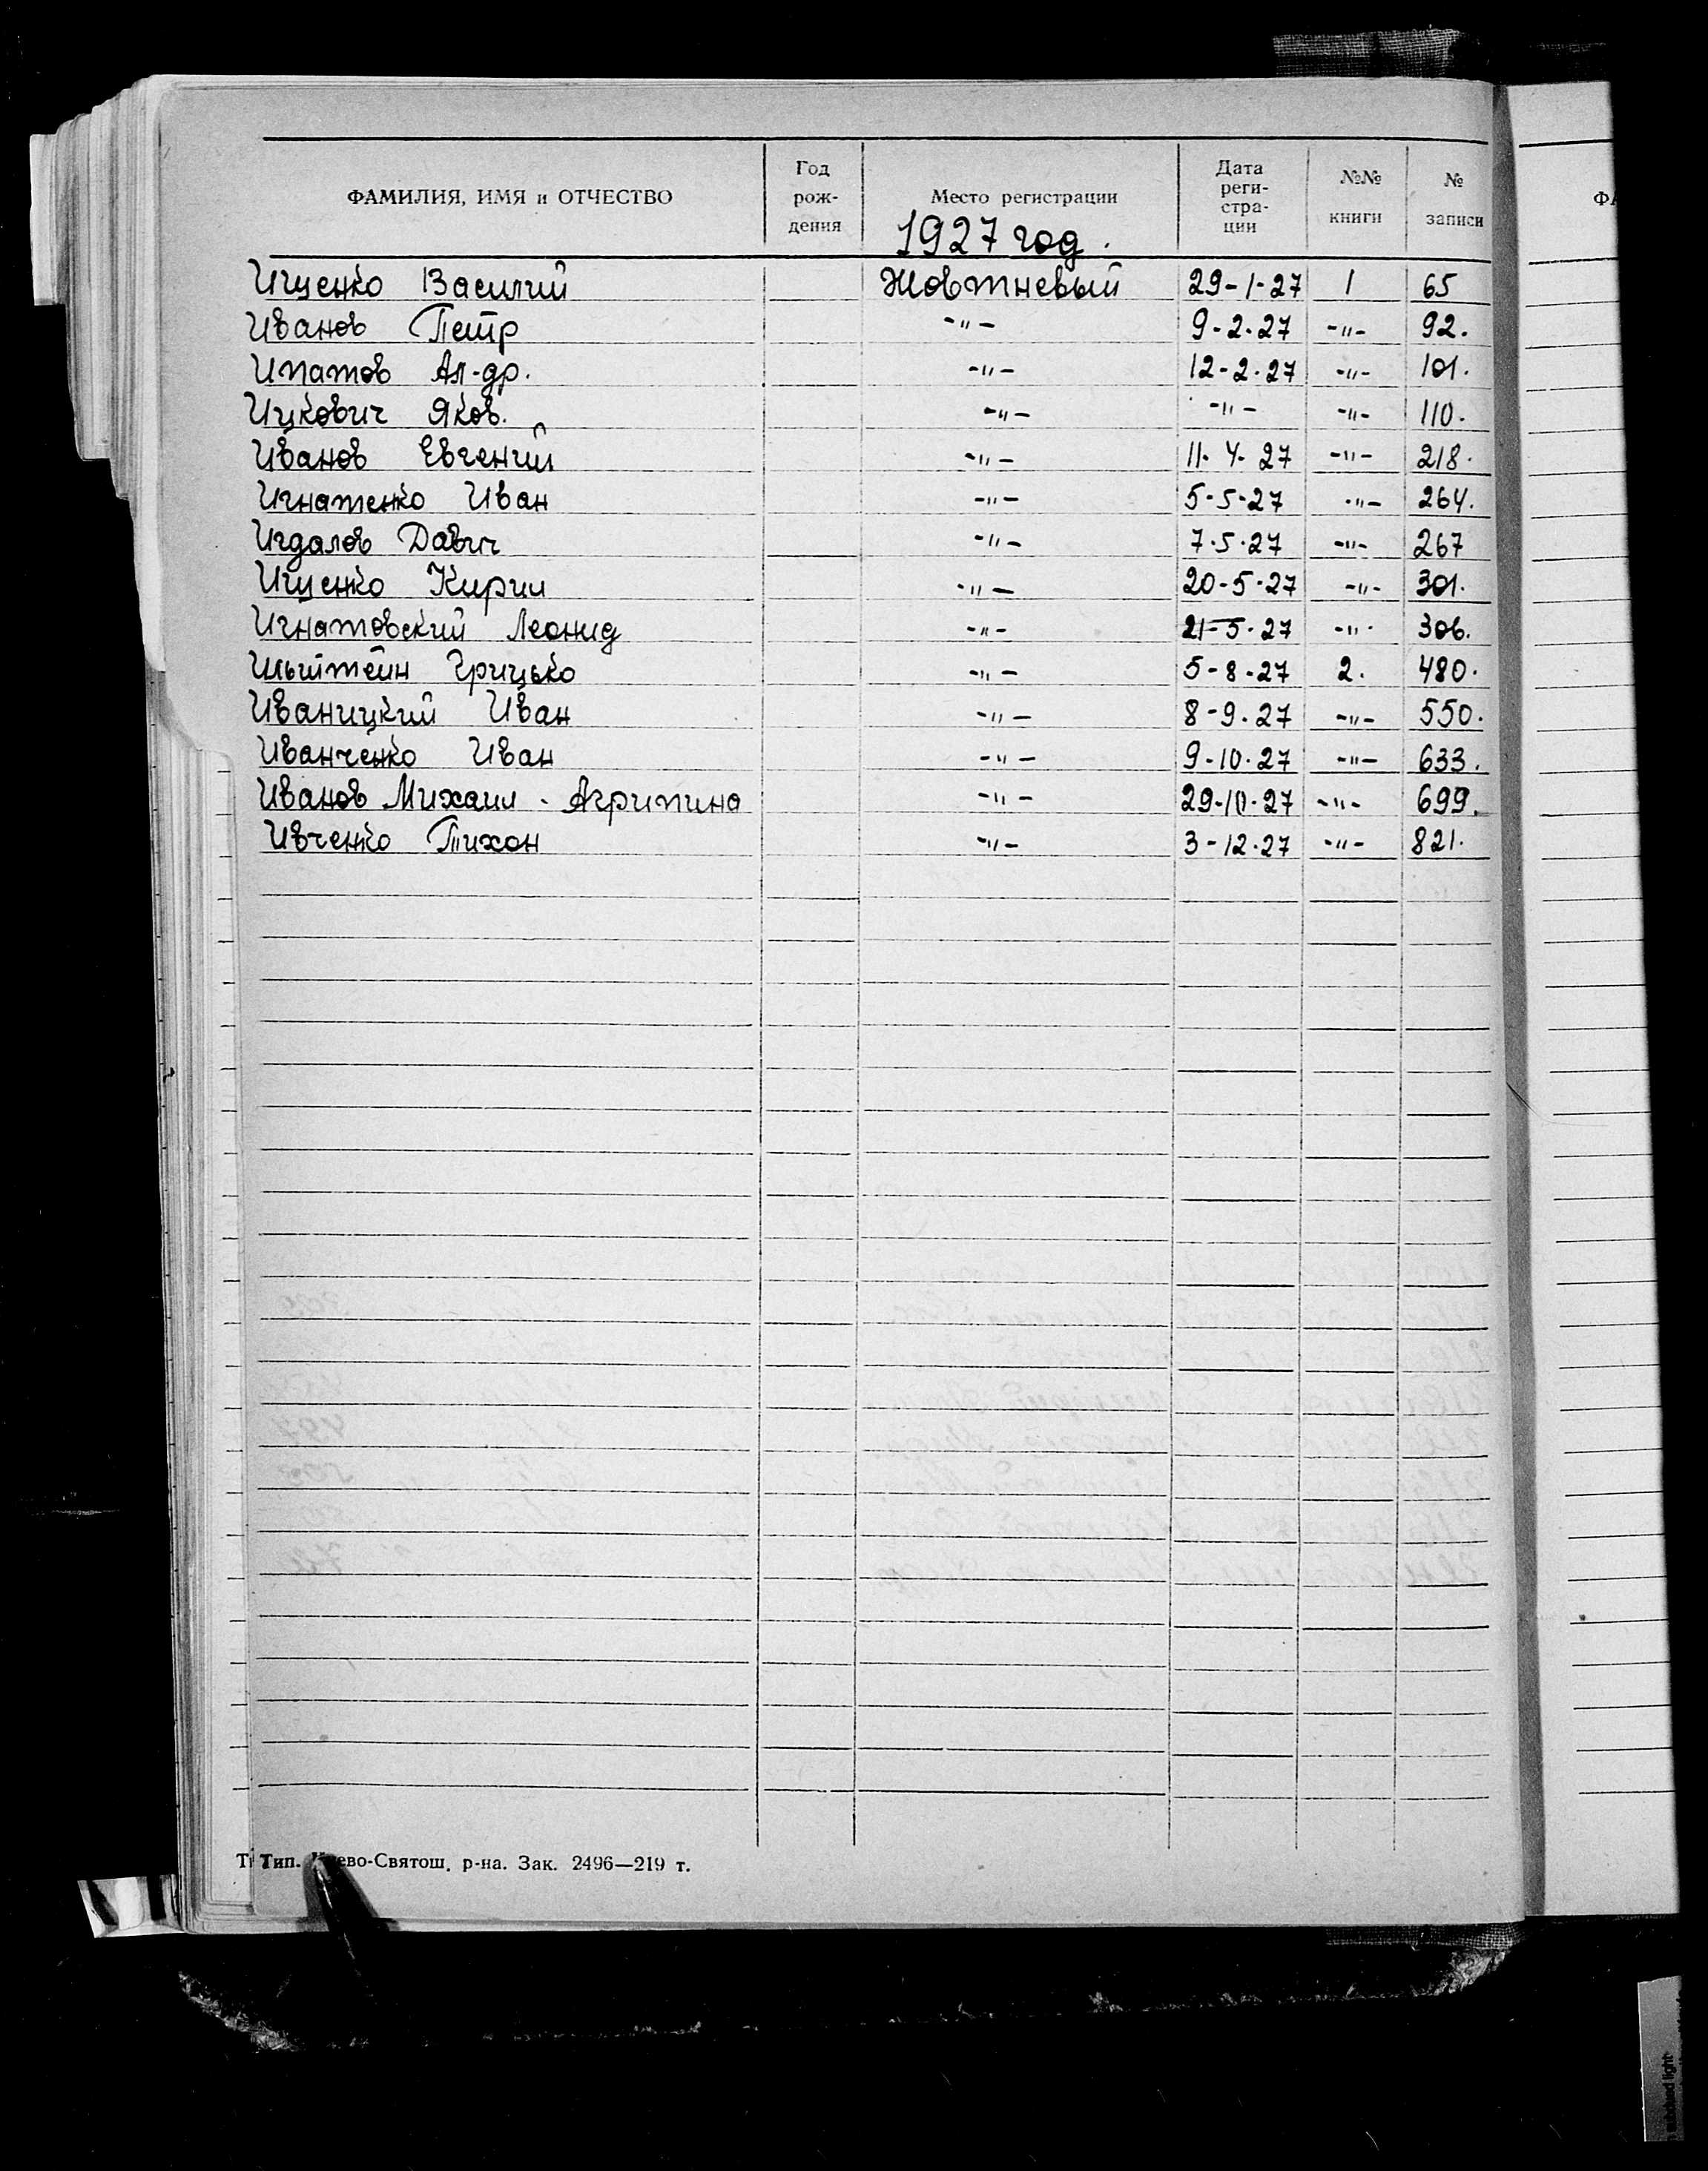 ФАМИЛИЯ, ИМЯ и ОТЧЕСТВО | Год рож-дения | Место регистрации | Дата реги-стра-ции | №№ книги | № записи
1927 год.
Ищенко Василий Жовтневый 29-1-27 1 65
Иванов Петр -"- 9-2-27 -"- 92.
Ипатов Ал-др. -"- 12-2-27 -"- 101.
Ицкович Яков. -"- -"- -"- 110.
Иванов Евгений -"- 11-4-27 -"- 218.
Игнатенко Иван -"- 5-5-27 -"- 264.
Игдалов Давич -"- 7-5-27 -"- 267
Ищенко Кирил -"- 20-5-27 -"- 301.
Игнатовский Леонид -"- 21-5-27 -"- 306.
Ильштейн Грицько -"- 5-8-27 2. 480.
Иваницкий Иван -"- 8-9-27 -"- 550.
Иванченко Иван -"- 9-10-27 -"- 633.
Иванов Михаил - Агрипина -"- 29-10-27 -"- 699.
Ивченко Тихон -"- 3-12-27 -"- 821.
Тип. ево-Святош. р-на. Зак. 2496—219 т.